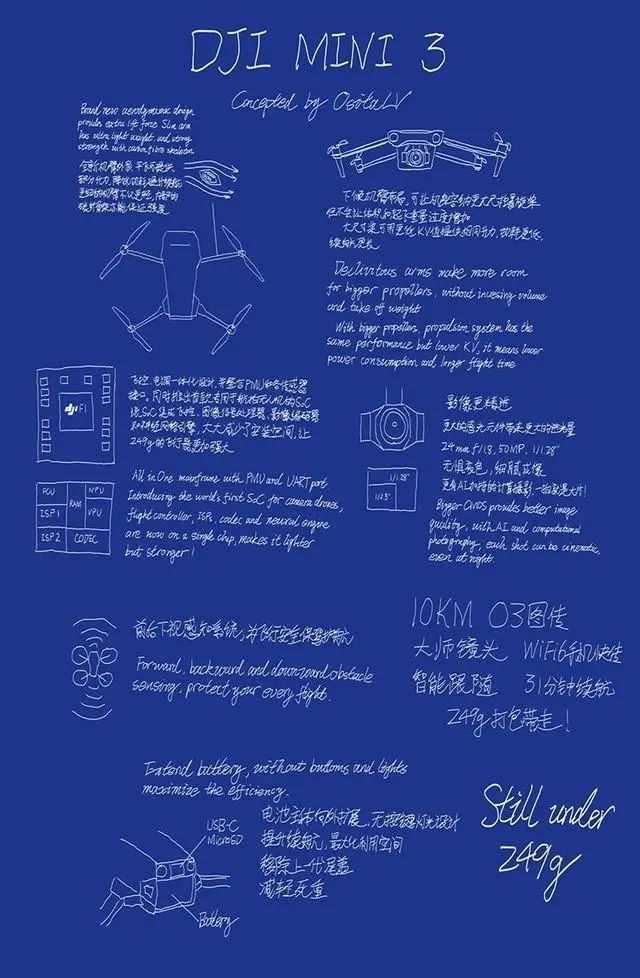 DJI MINI 3
Concepted by OsitaLV
Brand new aerodynamic design
provides extra lift force Slim arm
has ultra light weight and strong
strength with carbon fibre skeleton
下倾机臂布局,可让机身容纳更大尺寸螺旋桨
但不会让体积和起飞重量过度增加
大尺寸桨可用更低KV值提供相同升力,功耗更低,
续航更长
Declivitous arms make more room
for bigger propellers, without invesing volume
and take off weight
With bigger propellers, propulsion system has the
same performance but lower KV, it means lower
power consumption and longer flight time
dji FI
飞控、电调一体化设计,并整合PMU和各传感器
接口,同时推出首款专用于航拍无人机的SoC
该SoC集成飞控、图像信号处理器、影像编码器
和神经网络引擎,大大减少了安装空间,让
249g的飞行器更加强大
FCU
RAM
NPU
ISP 1
VPU
ISP 2
CODEC
All in One mainframe with PMU and UART port.
Introducing the world's first SoC for camera drones,
flight controller, ISP, codec and neural engine
are now on a single chip, makes it lighter
but stronger!
影像更精进
更大的感光元件带来更大的进光量
24mm f/1.8, 50MP, 1/1.28"
无惧夜色,细腻成像
更有AI加持的计算摄影,一拍就是大片!
1/1.28"
1/2.3"
Bigger CMOS provides better image
quality, with AI and computational
photography, each shot can be cinematic
even at night.
前后下视感知系统,为飞行安全保驾护航
Forward, backward and downward obstacle
sensing, protect your every flight.
10KM O3图传
大师镜头 WiFi6手机快传
智能跟随 31分钟续航
249g打包带走!
Extend battery, without buttons and lights
maximize the efficiency.
USB-C
MicroSD
Battery
电池主体向外扩展,无按键和灯光设计
提升续航,最大化利用空间
移除上一代尾盖
减轻死重
Still under
249g